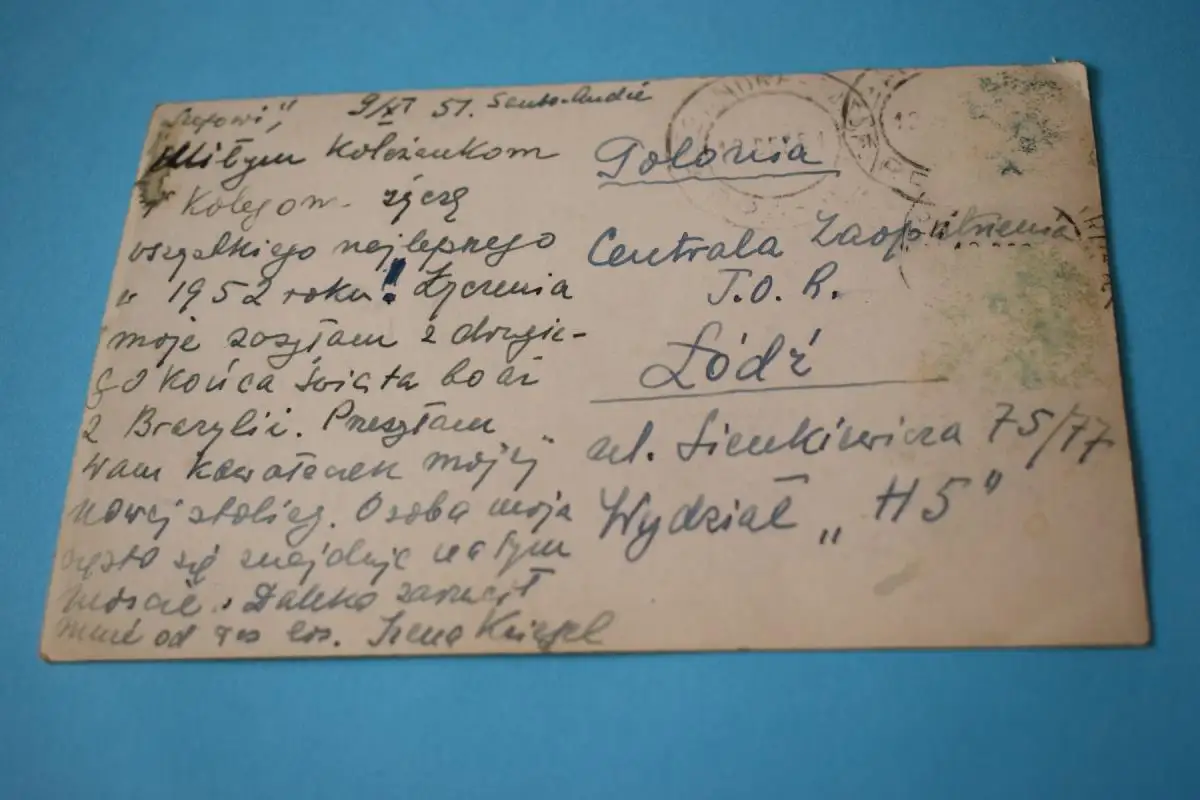 9/XI 51. Santo-André
Miłym Koleżankom
i Kolegom życzę
wszystkiego najlepszego
w 1952 roku! Życzenia
moje zasyłam z drugie-
go końca świata bo aż
z Brazylii. Przesyłam
Wam kawałeczek mojej
nowej stolicy. Osoba moja
często się znajduje na tym
moście. Daleko zarzucił
mnie od Was los. Irena
Polonia
Centrala Zaopatrzenia
T.O.R.
Łódź
ul. Sienkiewicza 75/77
Wydział „H5"